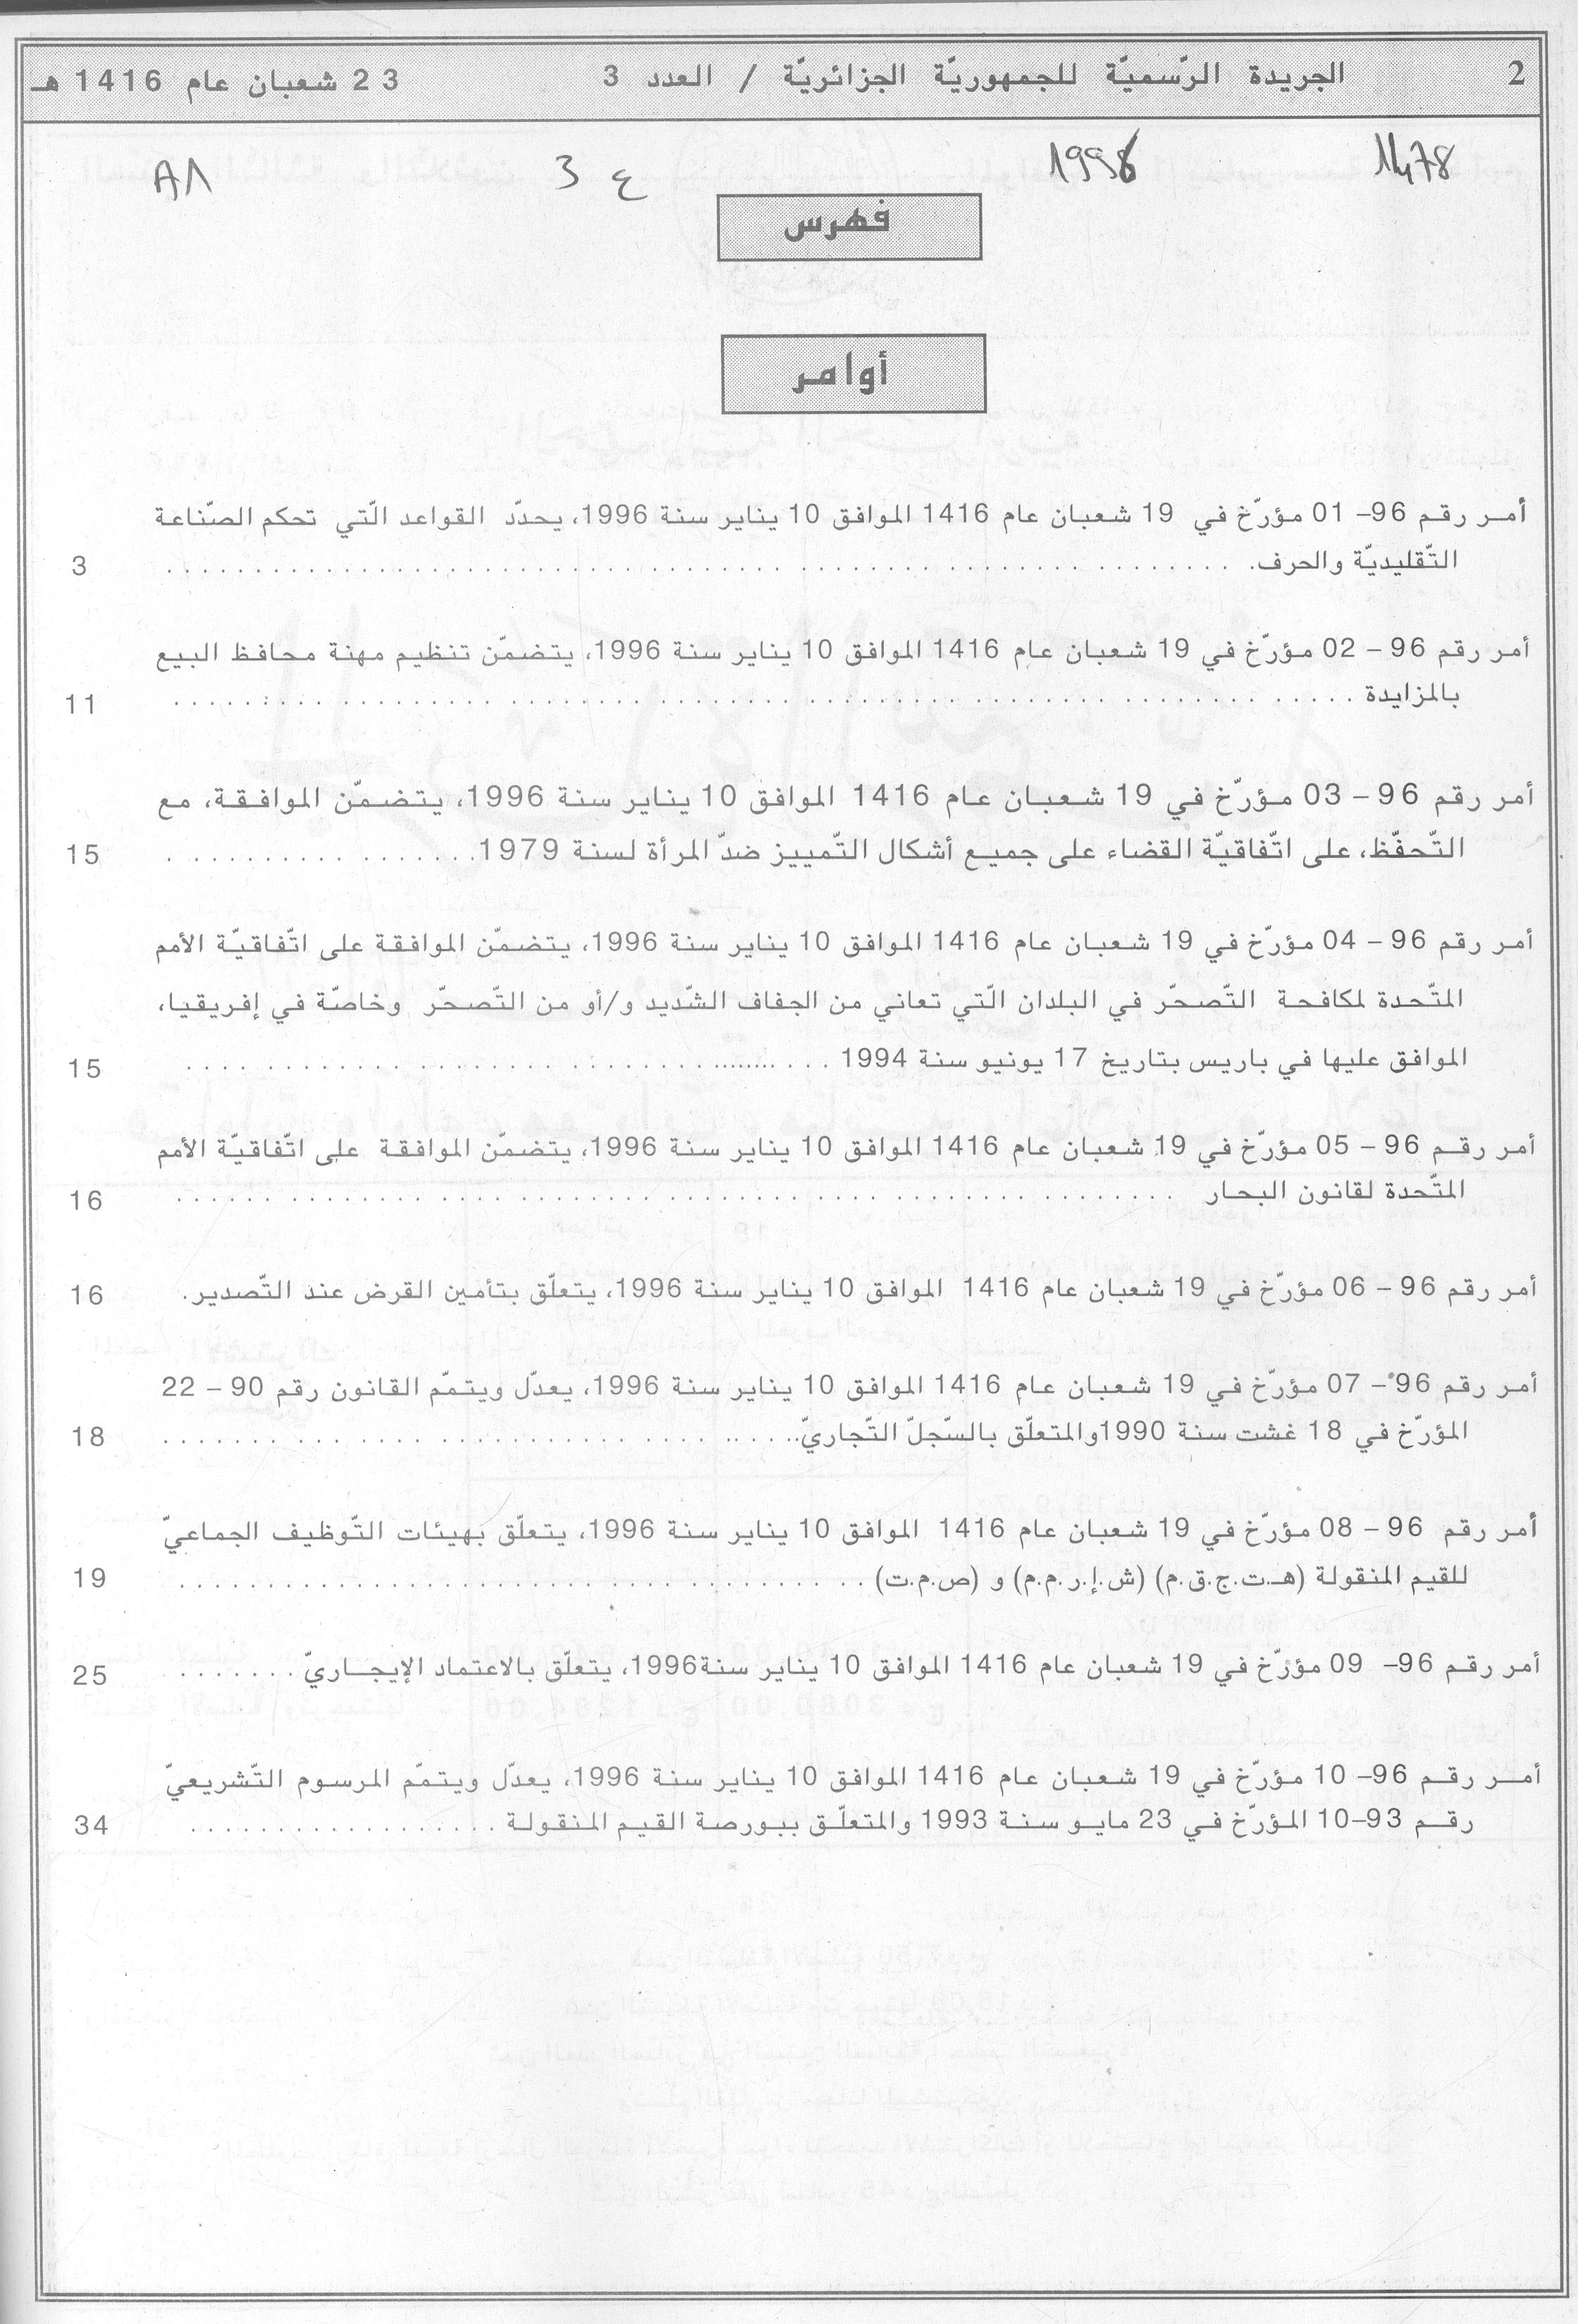 2 الجريدة الرّسميّة للجمهوريّة الجزائريّة / العدد 3 23 شعبان عام 1416 هـ
1478 1998 ع 3
فهرس
أوامر
أمر رقم 96– 01 مؤرّخ في 19 شعبان عام 1416 الموافق 10 يناير سنة 1996، يحدّد القواعد الّتي تحكم الصّناعة
التّقليديّة والحرف. . . . . . . . . . . . . . . . . . . . 3
أمر رقم 96 – 02 مؤرّخ في 19 شعبان عام 1416 الموافق 10 يناير سنة 1996، يتضمّن تنظيم مهنة محافظ البيع
بالمزايدة . . . . . . . . . . . . . . . . . . . . 11
أمر رقم 96 – 03 مؤرّخ في 19 شعبان عام 1416 الموافق 10 يناير سنة 1996، يتضمّن الموافقة، مع
التّحفّظ، على اتّفاقيّة القضاء على جميع أشكال التّمييز ضدّ المرأة لسنة 1979. . . . . . . . . . . . 15
أمر رقم 96 – 04 مؤرّخ في 19 شعبان عام 1416 الموافق 10 يناير سنة 1996، يتضمّن الموافقة على اتّفاقيّة الأمم
المتّحدة لمكافحة التّصحّر في البلدان الّتي تعاني من الجفاف الشّديد و/أو من التّصحّر وخاصّة في إفريقيا،
الموافق عليها في باريس بتاريخ 17 يونيو سنة 1994 . . . . . . . . . . . . . . . . 15
أمر رقم 96 – 05 مؤرّخ في 19 شعبان عام 1416 الموافق 10 يناير سنة 1996، يتضمّن الموافقة على اتّفاقيّة الأمم
المتّحدة لقانون البحار . . . . . . . . . . . . . . . . . . . . 16
أمر رقم 96 – 06 مؤرّخ في 19 شعبان عام 1416 الموافق 10 يناير سنة 1996، يتعلّق بتأمين القرض عند التّصدير. 16
أمر رقم 96 – 07 مؤرّخ في 19 شعبان عام 1416 الموافق 10 يناير سنة 1996، يعدّل ويتمّم القانون رقم 90 – 22
المؤرّخ في 18 غشت سنة 1990والمتعلّق بالسّجلّ التّجاريّ. . . . . . . . . . . . . . . . 18
أمر رقم 96 – 08 مؤرّخ في 19 شعبان عام 1416 الموافق 10 يناير سنة 1996، يتعلّق بهيئات التّوظيف الجماعيّ
للقيم المنقولة (هـ.ت.ج.ق.م) (ش.إ.ر.م.م) و (ص.م.ت) . . . . . . . . . . . . . . . . 19
أمر رقم 96– 09 مؤرّخ في 19 شعبان عام 1416 الموافق 10 يناير سنة1996، يتعلّق بالاعتماد الإيجاريّ . . . . . . . 25
أمر رقم 96– 10 مؤرّخ في 19 شعبان عام 1416 الموافق 10 يناير سنة 1996، يعدّل ويتمّم المرسوم التّشريعيّ
رقم 93–10 المؤرّخ في 23 مايو سنة 1993 والمتعلّق ببورصة القيم المنقولة . . . . . . . . . . . . 34